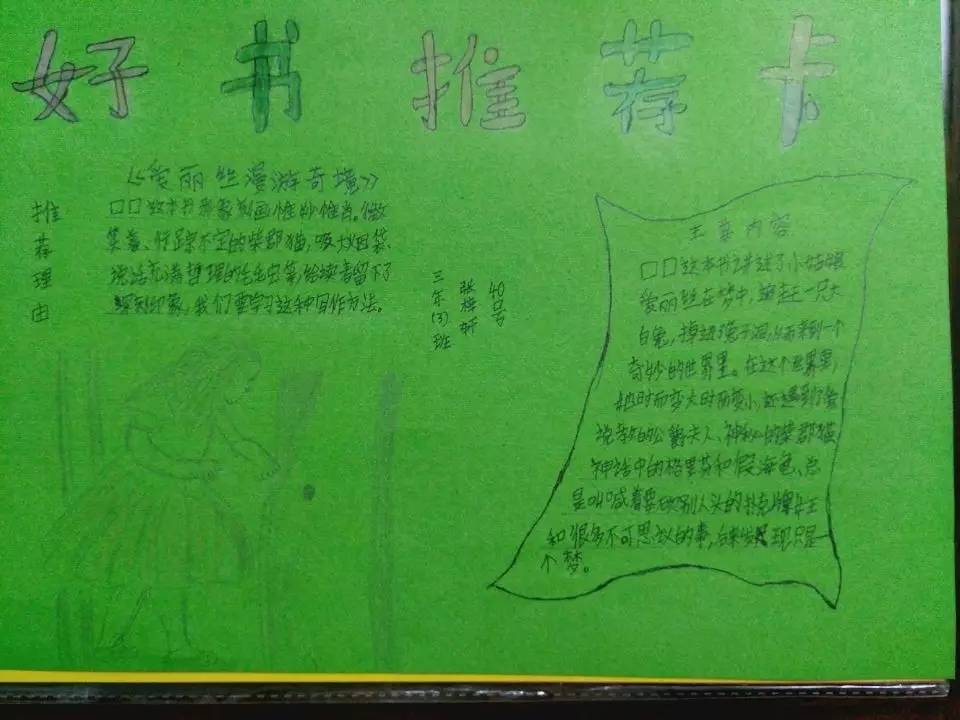 好书推荐卡
《爱丽丝漫游奇境》
推荐理由
口口这本书形象刻画惟妙惟肖。微
笑着、行踪不定的柴郡猫,吸水烟袋、
说话充满哲理的毛毛虫等,给读者留下了
深刻印象,我们要学习这种写作方法。
三年(3)班
张 妍
40号
主要内容
口口这本书讲述了小姑娘
爱丽丝在梦中,追赶一只大
白兔,掉进了兔子洞,从而来到一个
奇妙的世界里。在这个世界里,
她时而变大时而变小,还遇到了爱
说教的公爵夫人、神秘的柴郡猫
神话中的格里芬和假海龟、总
是叫喊着要砍别人头的扑克牌女王
和很多不可思议的事,后来发现只是一
个梦。